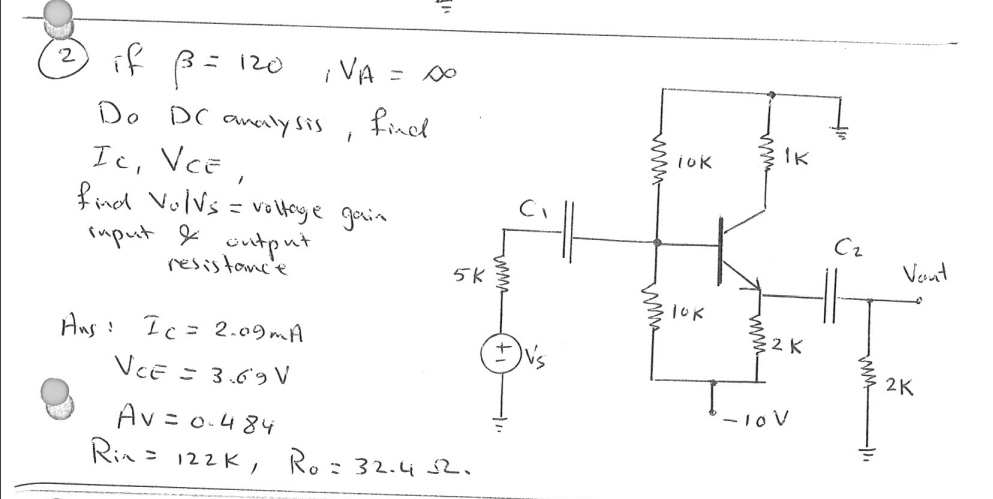 2 if β = 120 , VA = ∞
Do DC analysis , find
Ic, VCE ,
find Vo/Vs = voltage gain
input & output
resistance
Ans : Ic = 2.09mA
VCE = 3.69V
Av = 0.484
Rin = 122K , Ro = 32.4 Ω.
10K
1K
C1
5K
+
-
Vs
10K
2K
C2
Vout
2K
-10V